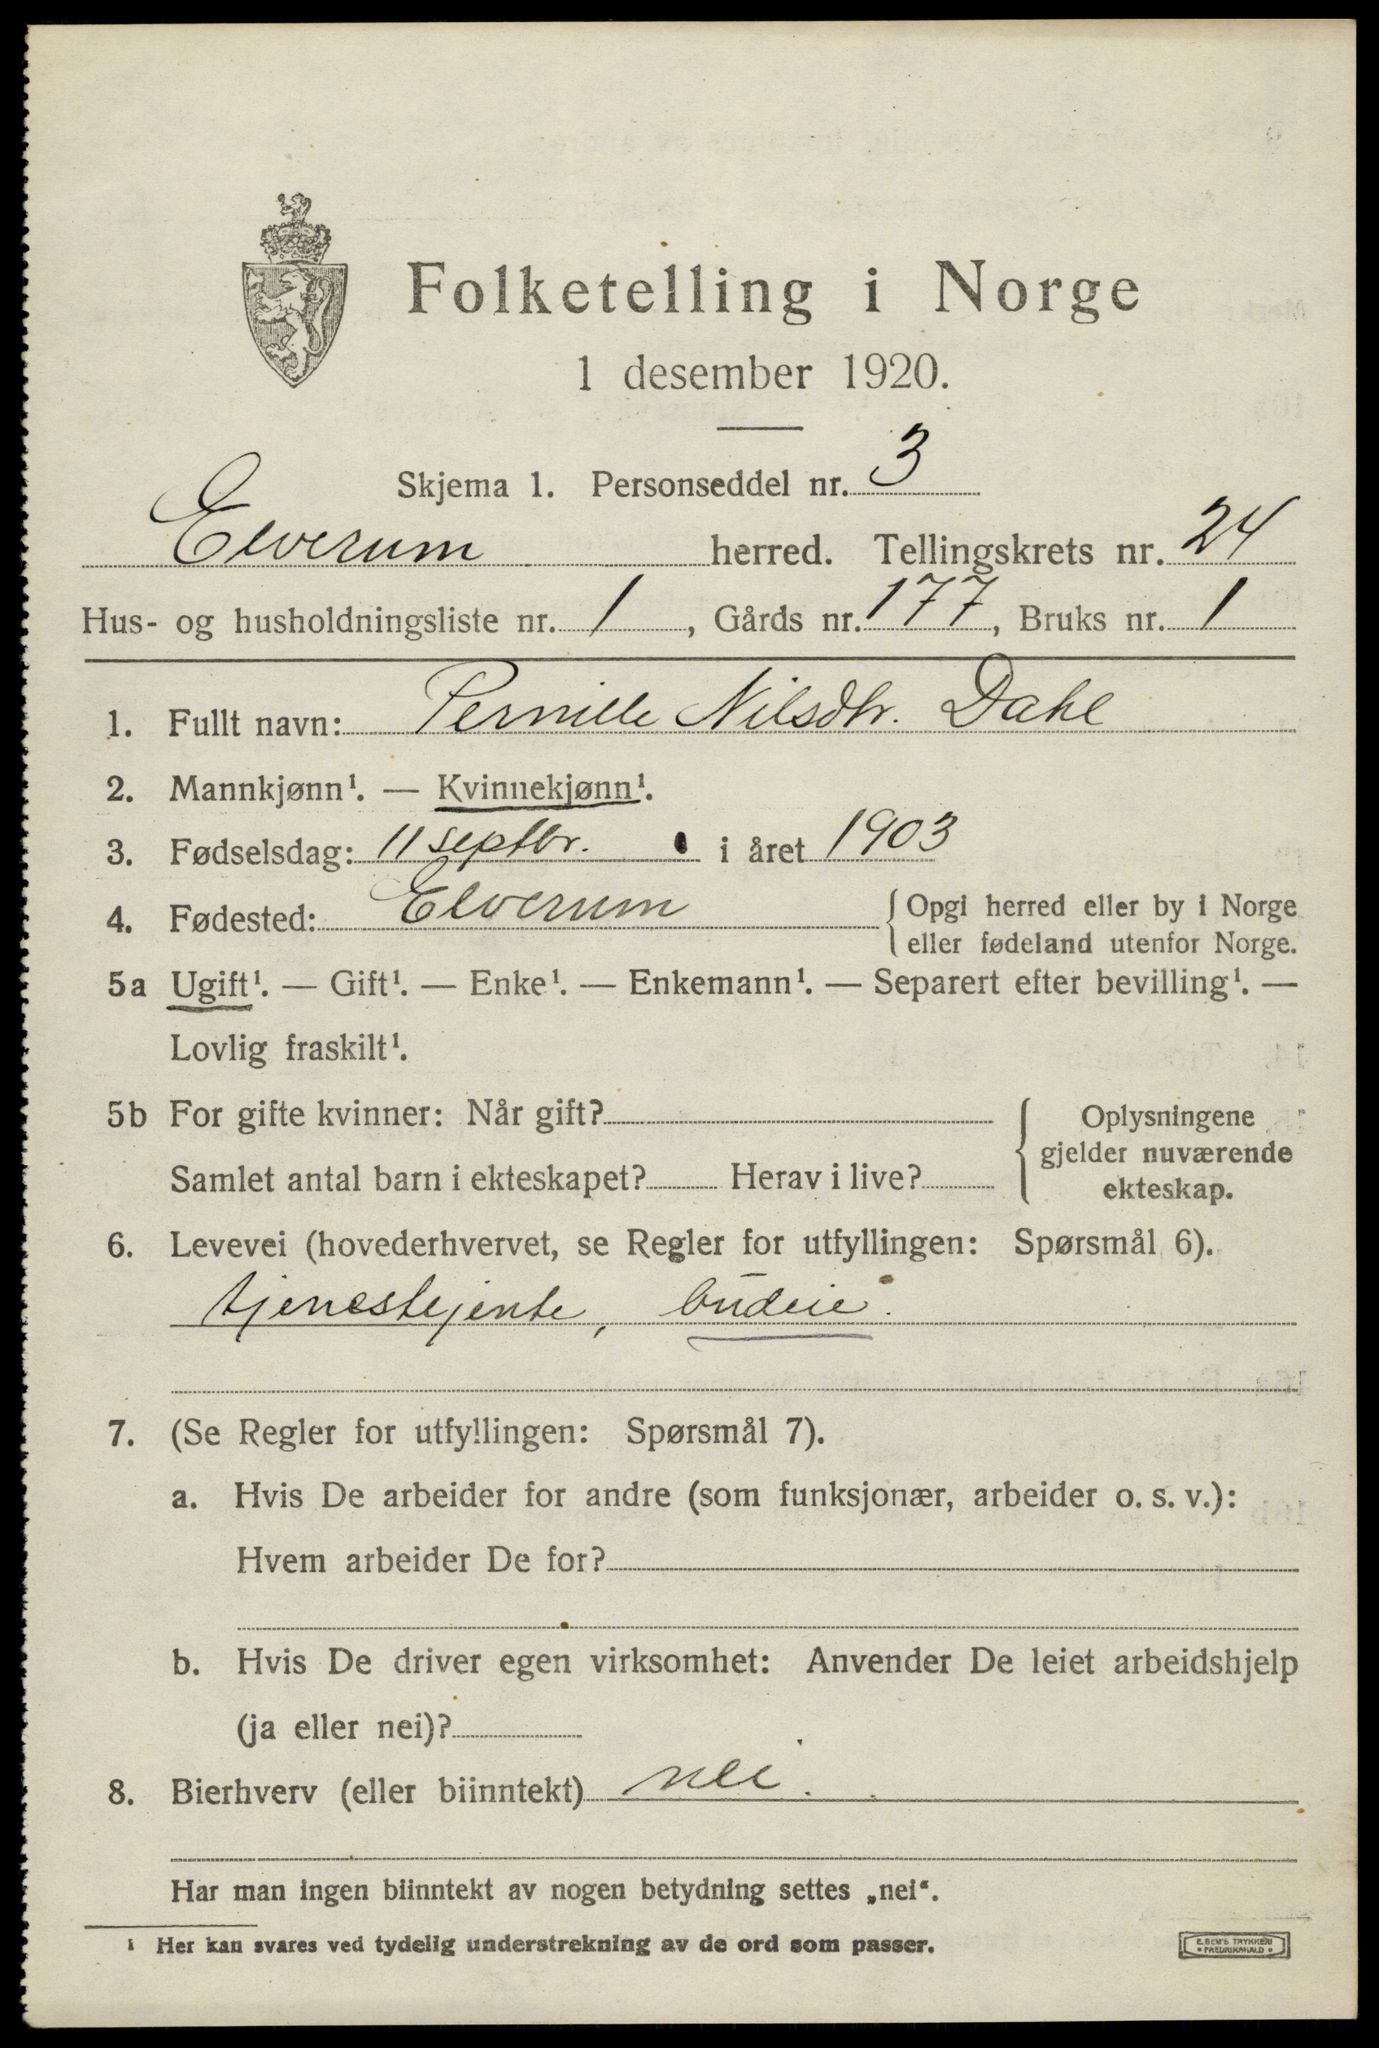 Folketelling i Norge
1 desember 1920.
Skjema 1. Personseddel nr. 3
Elverum herred. Tellingskrets nr. 24
Hus- og husholdningsliste nr. 1, Gårds nr. 177, Bruks nr. 1
1. Fullt navn: Pernille Nilsdtr. Dahl
2. Mannkjønn¹. — Kvinnekjønn¹.
3. Fødselsdag: 11 septbr. i året 1903
4. Fødested: Elverum { Opgi herred eller by i Norge
eller fødeland utenfor Norge.
5a Ugift¹. — Gift¹. — Enke¹. — Enkemann¹. — Separert efter bevilling¹. —
Lovlig fraskilt¹.
5b For gifte kvinner: Når gift? { Oplysningene
gjelder nuværende
Samlet antal barn i ekteskapet? Herav i live? ekteskap.
6. Levevei (hovederhvervet, se Regler for utfyllingen: Spørsmål 6).
tjenestejente, budeie.
7. (Se Regler for utfyllingen: Spørsmål 7).
a. Hvis De arbeider for andre (som funksjonær, arbeider o. s. v.):
Hvem arbeider De for?
b. Hvis De driver egen virksomhet: Anvender De leiet arbeidshjelp
(ja eller nei)?
8. Bierhverv (eller biinntekt) nei.
Har man ingen biinntekt av nogen betydning settes „nei“.
¹ Her kan svares ved tydelig understrekning av de ord som passer.
E. SEM'S TRYKKERI
FREDRIKSHALD